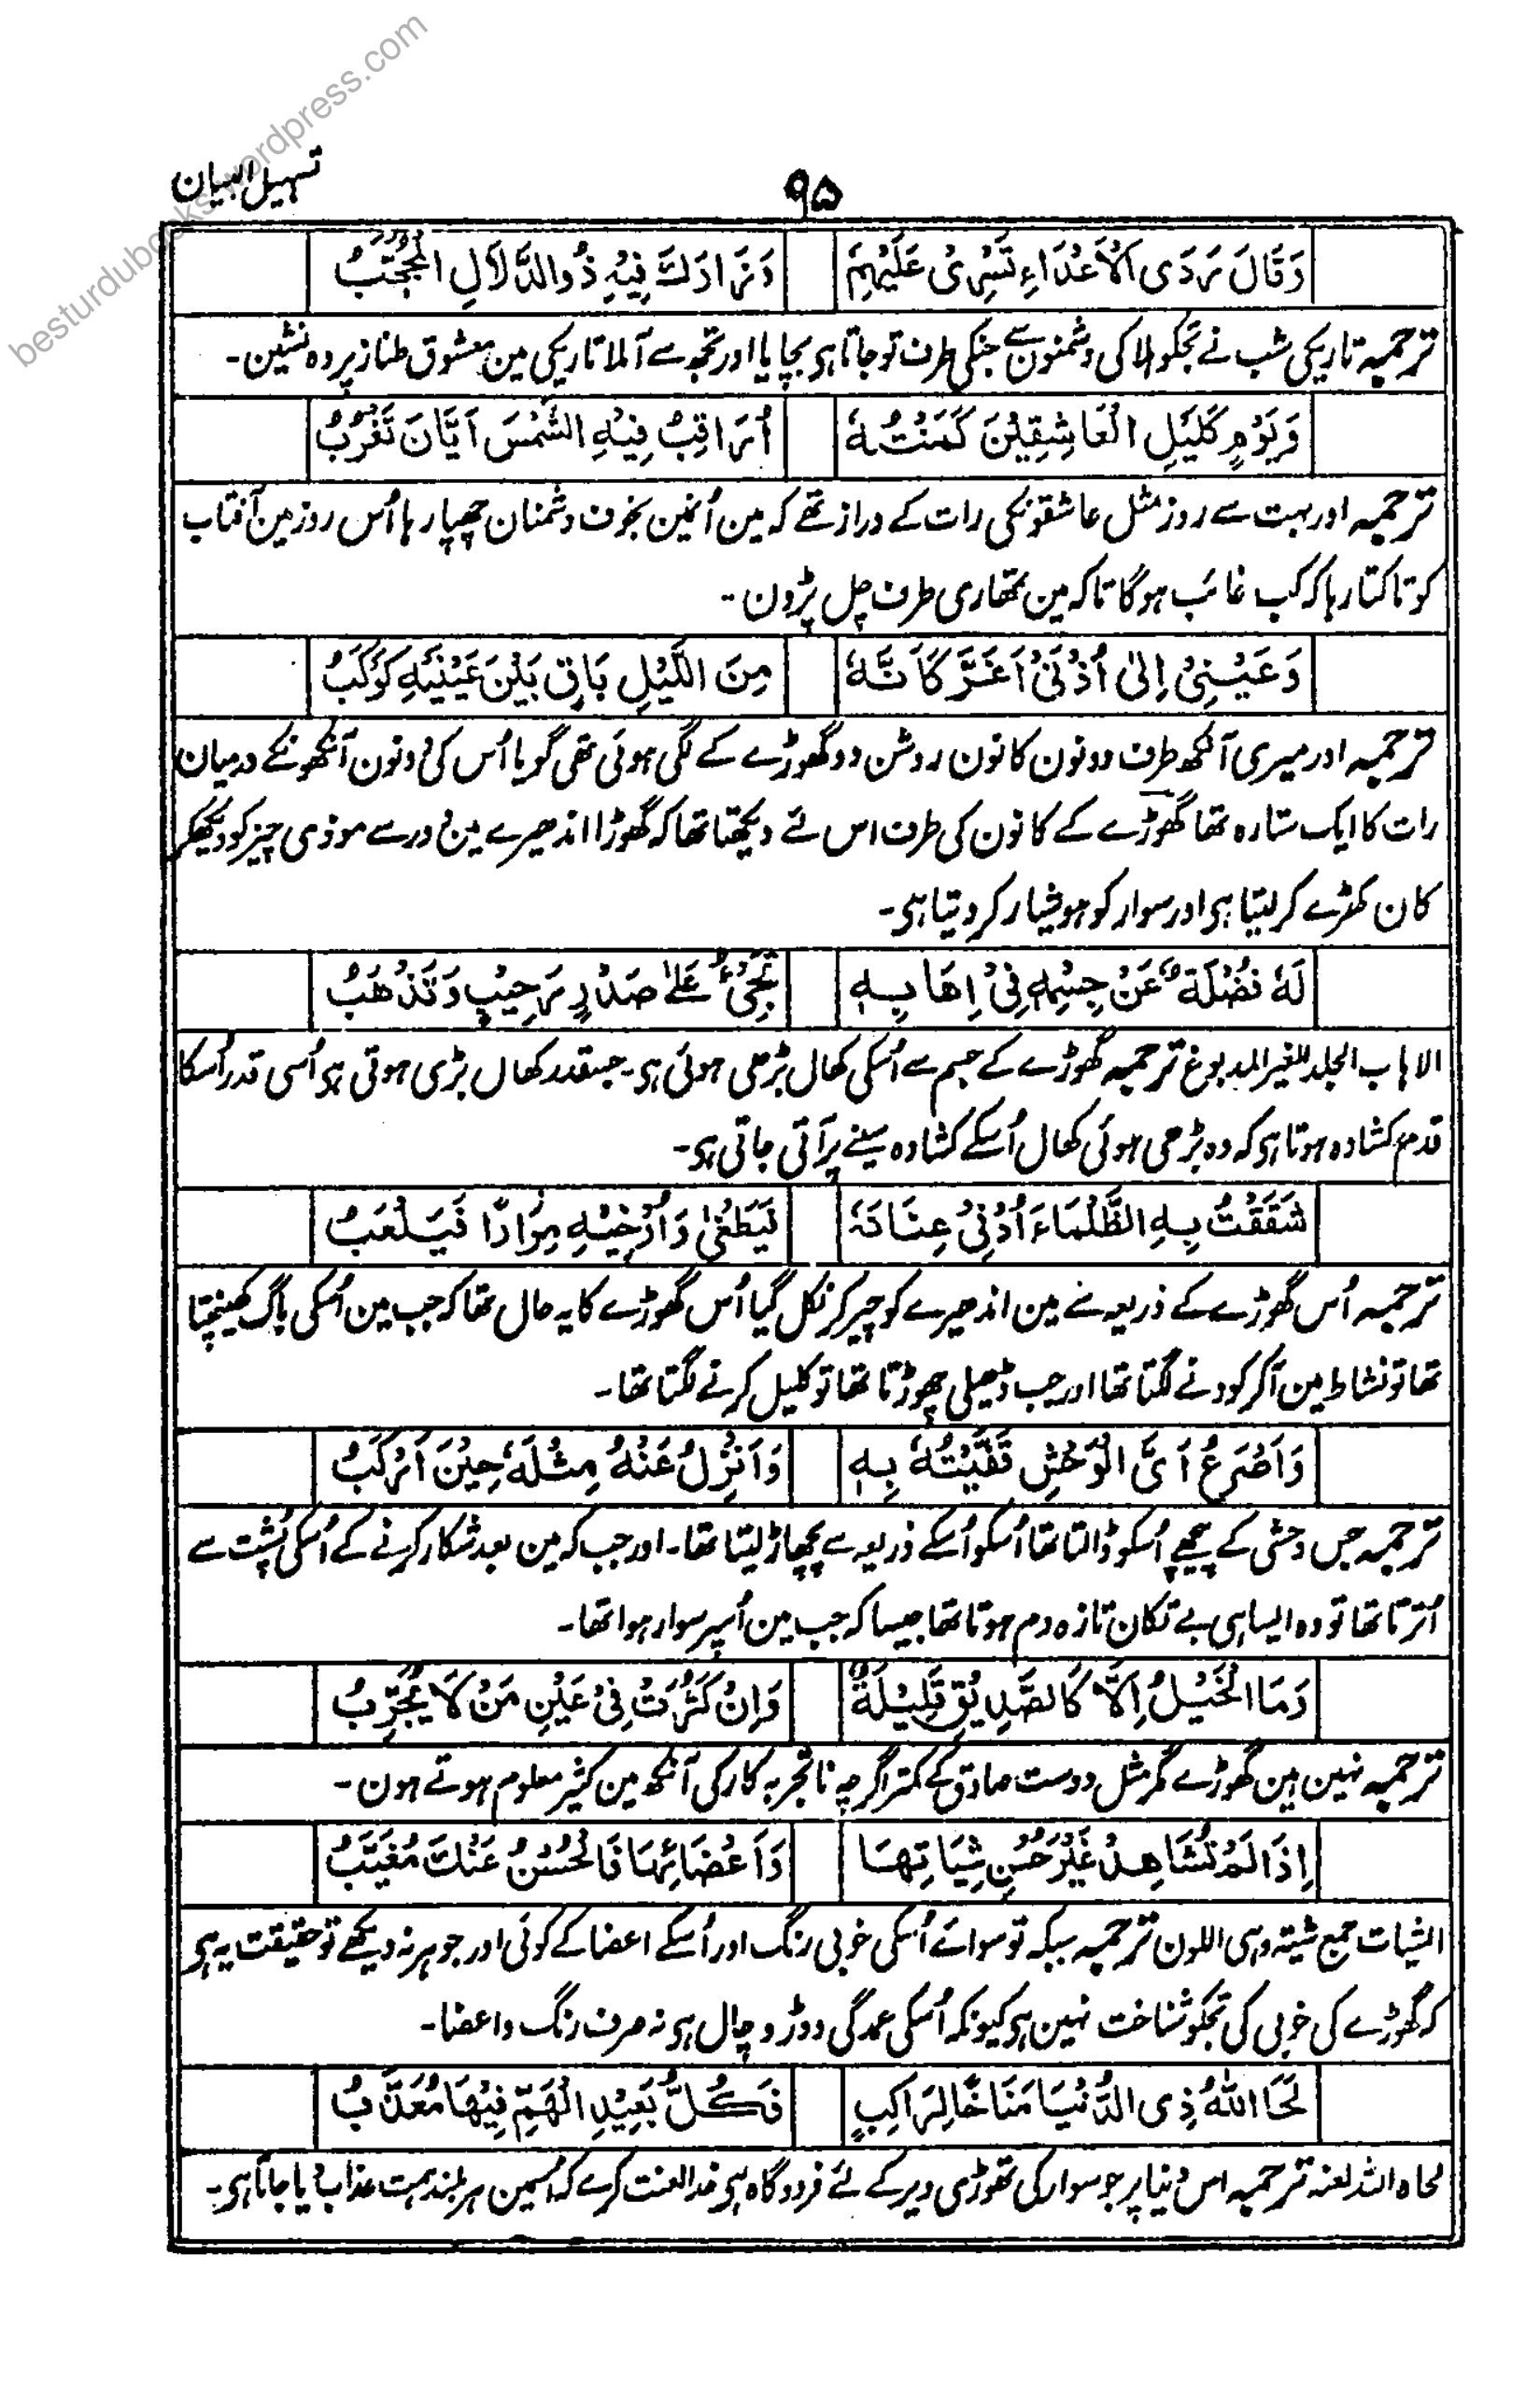 besturdubooks.wordpress.com
تسہیل البیان
۹۵
وَقَاكَ رَدَى الْاَعْدَاءِ تَسْرِىْ عَلَيْهِمْ وَزَارَكَ فِيْهِ ذُو الدَّلَالِ الْمُحَجَّبُ
ترجمہ تاریکی شب نے تجکو ہلاکی دشمنون سے جنکی طرف تو جاتا ہی بچایا اور تجھ سے آملا تاریکی مین معشوق طناز پردہ نشین۔
وَيَوْمٍ كَلَيْلِ الْعَاشِقِيْنَ كَمَنْتُهٗ اُرَاقِبُ فِيْهِ الشَّمْسَ اَيَّانَ تَغْرُبُ
ترجمہ اور بہت سے روز مثل عاشقونکی رات کے دراز تھے کہ مین اُنمین بخوف دشمنان چھپا رہا اُس روز مین آفتاب
کو تاکتا رہا کہ کب غائب ہوگا تاکہ مین تمھاری طرف چل پڑون۔
وَعَيْنِىْ اِلٰى اُذْنَىْ اَغَرَّ كَاَنَّهٗ مِنَ اللَّيْلِ بَاقٍ بَيْنَ عَيْنَيْهِ كَوْكَبُ
ترجمہ اور میری آنکھ طرف دونون کانون روشن رو گھوڑے کے لگی ہوئی تھی گویا اُس کی دونون آنکھونکے درمیان
رات کا ایک ستارہ تھا گھوڑے کے کانون کی طرف اس لئے دیکھتا تھا کہ گھوڑا اندھیرے مین دور سے موذی چیز کو دیکھکر
کان کھڑے کر لیتا ہی اور سوار کو ہوشیار کر دیتا ہی۔
لَهٗ فَضْلَةٌ عَنْ جِسْمِهٖ فِىْ اِهَابِهٖ تَجِىْءُ عَلٰى صَدْرٍ رَحِيْبٍ وَتَذْهَبُ
الاہاب الجلد للغیر المدبوغ ترجمہ گھوڑے کے جسم سے اُسکی کھال بڑھی ہوئی ہی۔ جسقدر کھال بڑی ہوتی ہی اُسی قدر اُسکا
قدم کشادہ ہوتا ہی کہ وہ بڑھی ہوئی کھال اُسکے کشادہ سینے پر آتی جاتی ہی۔
شَقَقْتُ بِهِ الظَّلْمَاءَ اُدْنِىْ عِنَانَهٗ فَيَطْغٰى وَاُرْخِيْهِ مِرَارًا فَيَلْعَبُ
ترجمہ اُس گھوڑے کے ذریعہ سے مین اندھیرے کو چیر کر نکل گیا اُس گھوڑے کا یہ حال تھا کہ جب مین اُسکی باگ کھینچتا
تھا تو نشاط مین آکر کودنے لگتا تھا اور جب ڈھیلی چھوڑتا تھا تو کلیل کرنے لگتا تھا۔
وَاَصْرَعُ اَىَّ الْوَحْشِ قَفَّيْتُهٗ بِهٖ وَاَنْزِلُ عَنْهُ مِثْلَهٗ حِيْنَ اَرْكَبُ
ترجمہ جس وحشی کے پیچھے اُسکو ڈالتا تھا اُسکو اُسکے ذریعہ سے پچھاڑ لیتا تھا۔ اور جب کہ مین بعد شکار کرنے کے اُسکی پشت سے
اُترتا تھا تو وہ ایسا ہی بے تکان تازہ دم ہوتا تھا جیسا کہ جب مین اُسپر سوار ہوا تھا۔
وَمَا الْخَيْلُ اِلَّا كَالصَّدِيْقِ قَلِيْلَةٌ وَاِنْ كَثُرَتْ فِىْ عَيْنِ مَنْ لَا يُجَرِّبُ
ترجمہ نہین ہین گھوڑے مگر مثل دوست صادق کے کمتر اگرچہ ناتجربہ کار کی آنکھ مین کثیر معلوم ہوتے ہون۔
اِذَا لَمْ تُشَاهِدْ غَيْرَ حُسْنِ شِيَاتِهَا وَاَعْضَائِهَا فَالْحُسْنُ عَنْكَ مُغَيَّبُ
الشیات جمع شیتہ وہی اللون ترجمہ جبکہ تو سوائے اُسکی خوبی رنگ اور اُسکے اعضا کے کوئی اور جوہر نہ دیکھے تو حقیقت یہ ہی
کہ گھوڑے کی خوبی کی تجکو شناخت نہین ہی کیونکہ اُسکی عمدگی دوڑ و چال ہی نہ صرف رنگ و اعضا۔
لَحَا اللّٰهُ ذِى الدُّنْيَا مَنَاخًا لِرَاكِبٍ فَكُلُّ بَعِيْدِ الْهَمِّ فِيْهَا مُعَذَّبُ
لحاہ اللہ لعنہ ترجمہ اس دنیا پر جو سوار کی تھوڑی دیر کے لئے فرودگاہ ہی خدا لعنت کرے کہ اُسمین ہر بلند ہمت عذاب دیا جاتا ہی۔